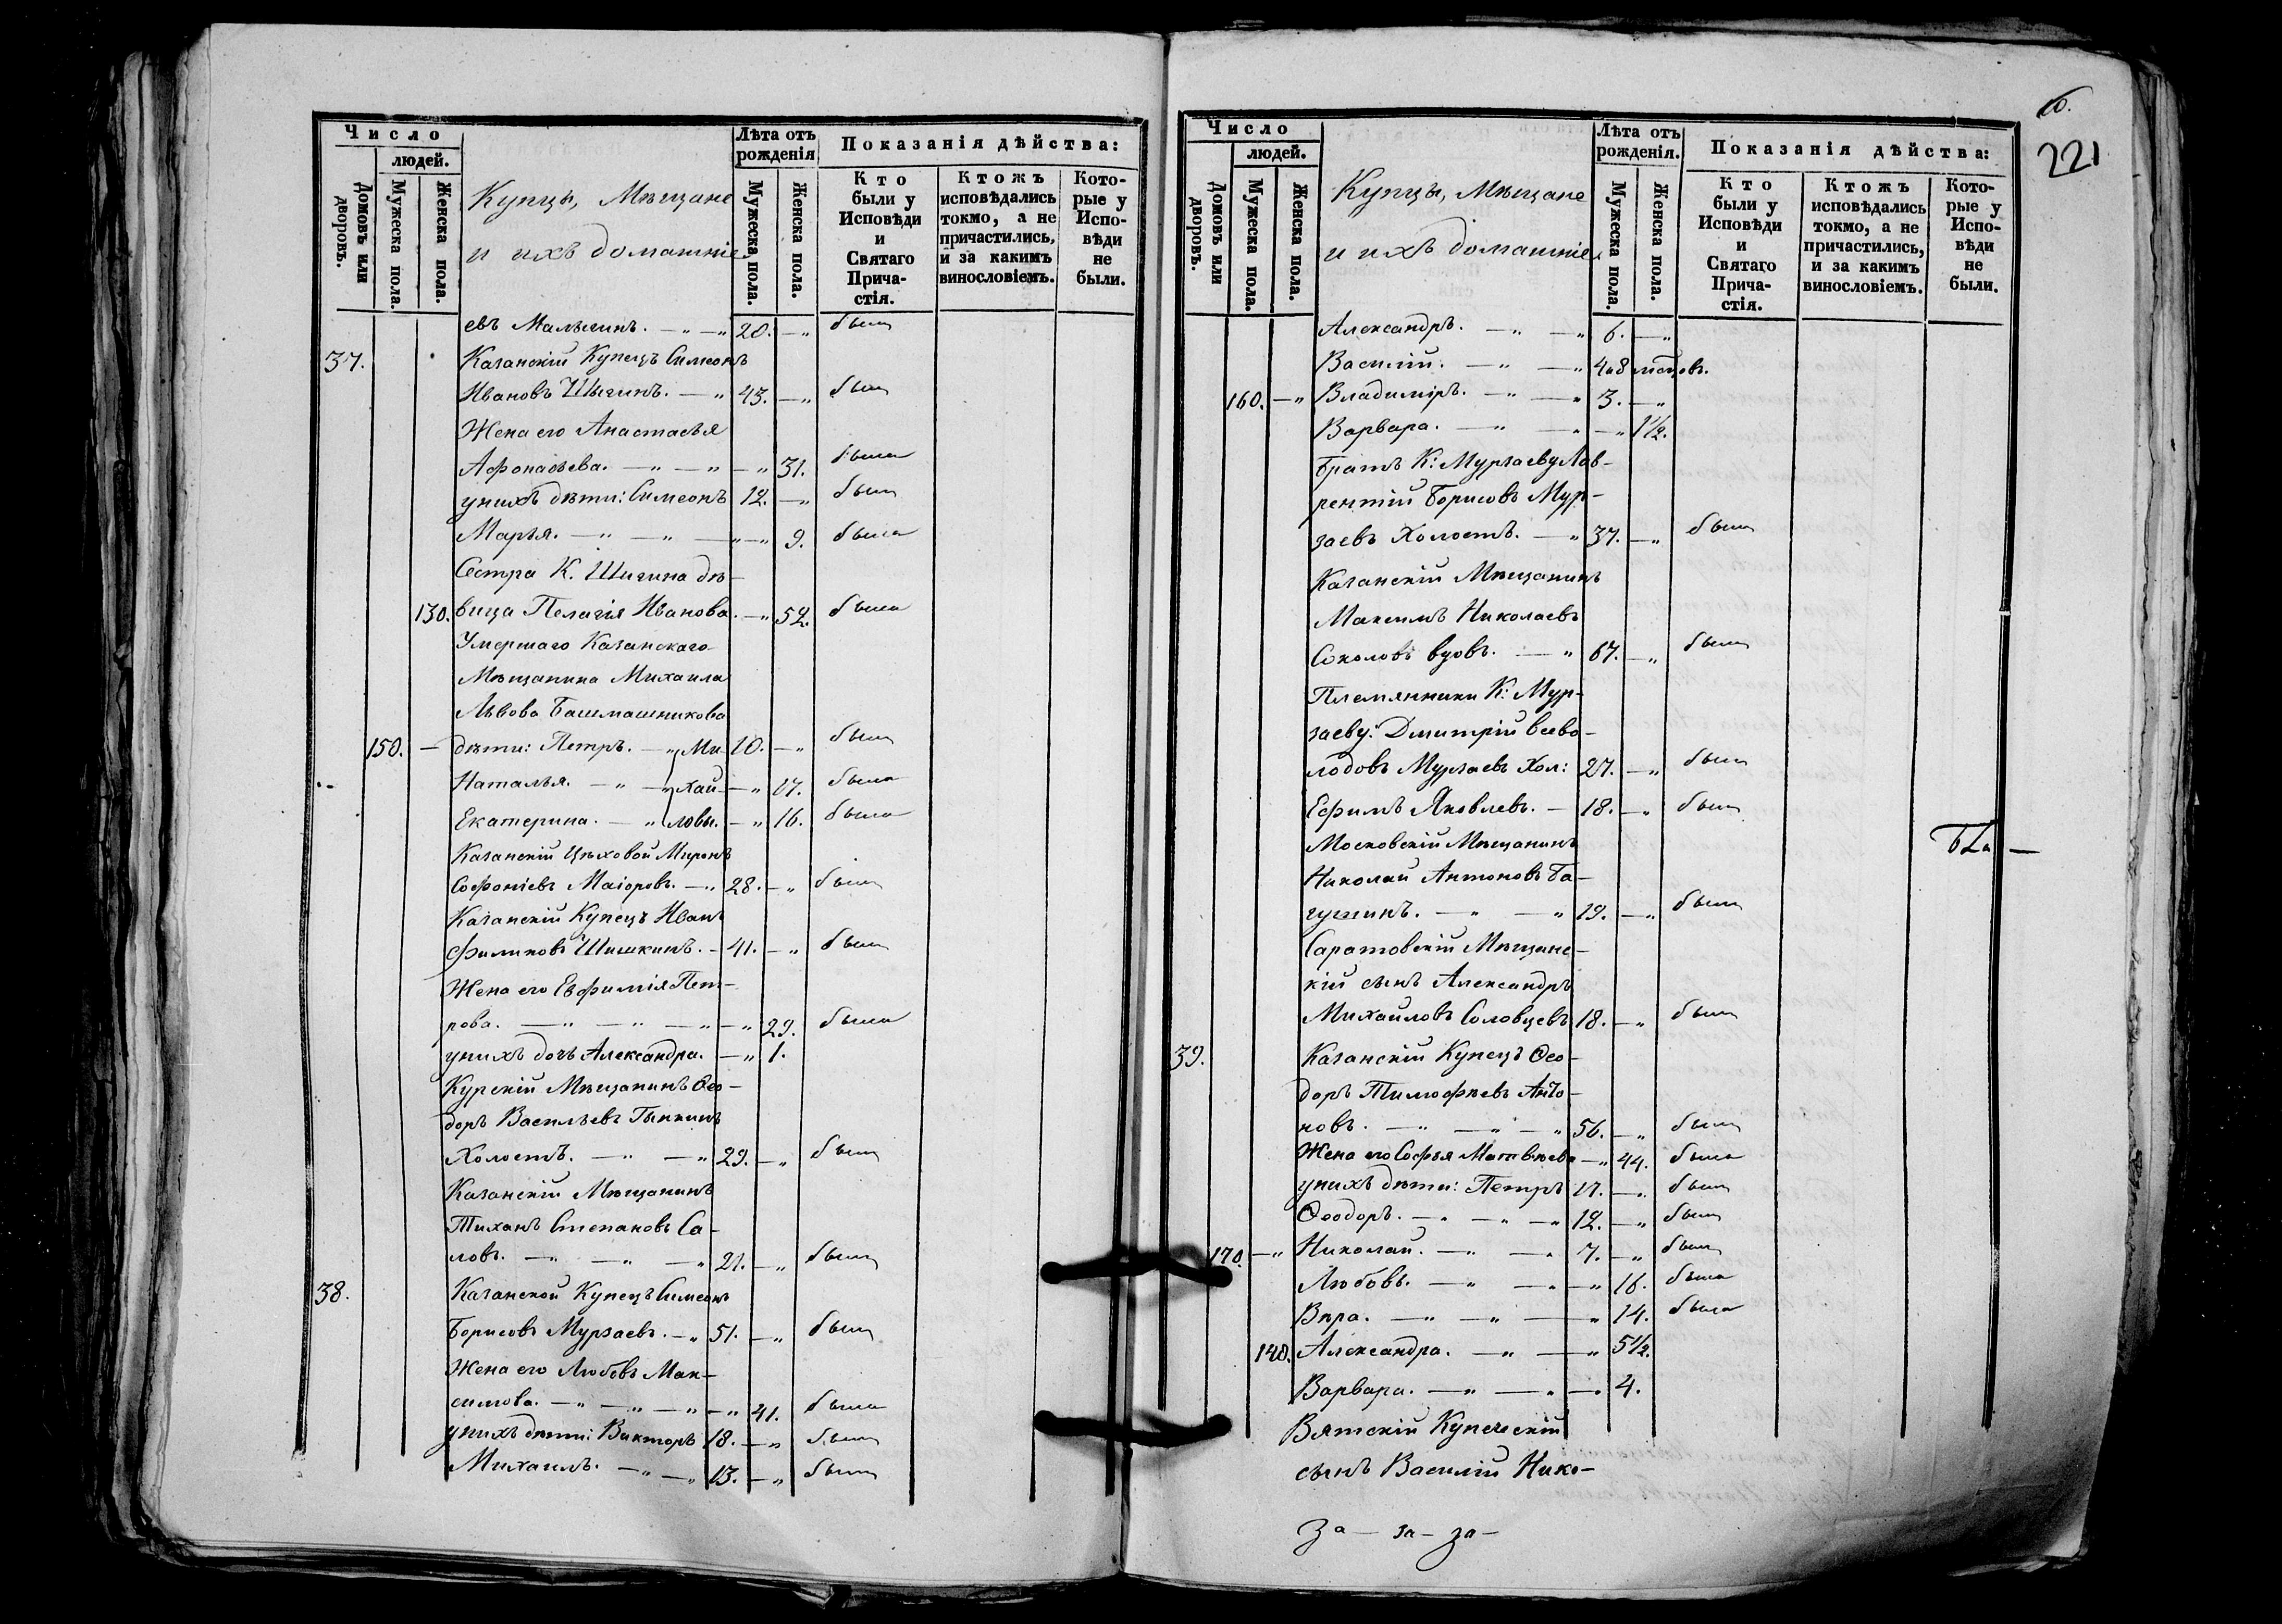 Число
людей.
Домовъ или дворовъ.
Мужеска пола.
Женска пола.
Купцы, Мѣщане
и ихъ домашніе
Лѣта отъ рожденія
Мужеска пола.
Женска пола.
Показанія дѣйства:
Кто были у Исповѣди и Святаго Прича-стія.
Ктожъ исповѣдались токмо, а не причастились, и за какимъ винословіемъ.
Кото-рые у Испо-вѣди не были.
евъ Малыгинъ. — „ — „ 20. — „ былъ
37. Казанскій Купецъ Симеонъ
Ивановъ Шыгинъ. — „ 43. — „ былъ
Жена его Анастасья
Афонасьева. — „ — „ — „ 31. была
у нихъ дѣти: Симеонъ 12. — „ былъ
Марья. — „ — „ — „ — „ 9. была
Сестра К. Шигина дѣ-
130. вица Пелагія Иванова. — „ 52. была
Умершаго Казанскаго
Мѣщанина Михаила
Львова Башмашникова
150. — дѣти: Петръ. — „ Ми- 10. — „ былъ
Наталья. — „ — „ хай- — „ 17. была
Екатерина. — „ ловы. — „ 16. была
Казанскій Цѣховой Миронъ
Софоніевъ Маіоровъ. — „ 28. — „ былъ
Казанскій Купецъ Иванъ
Филиповъ Шишкинъ. — 41. — „ былъ
Жена его Евфимія Пет-
рова. — „ — „ — „ — „ 29. была
у нихъ дочь Александра. — „ 1.
Курскій Мѣщанинъ Ѳео-
доръ Васильевъ
Холостъ. — „ — „ 29. — „ былъ
Казанскій Мѣщанинъ
Тихонъ Степановъ Са-
ловъ. — „ — „ — „ 21. — „ былъ
38. Казанской Купецъ Симеонъ
Борисовъ Мурзаевъ. — „ 51. — „ былъ
Жена его Любовь Мак-
симова. — „ — „ — „ — „ 41. была
у нихъ дѣти: Викторъ 18. — „ былъ
Михаилъ. — „ — „ 13. — „ былъ
221
Число
людей.
Домовъ или дворовъ.
Мужеска пола.
Женска пола.
Купцы, Мѣщане
и ихъ домашніе
Лѣта отъ рожденія.
Мужеска пола.
Женска пола.
Показанія дѣйства:
Кто были у Исповѣди и Святаго Прича-стія.
Ктожъ исповѣдались токмо, а не причастились, и за какимъ винословіемъ.
Кото-рые у Испо-вѣди не были.
Александръ. — „ — „ 6. — „
Василій. — „ — „ 4 и 8 мѣсцовъ.
160. — „ Владиміръ. — „ — „ 3. — „
Варвара. — „ — „ — „ 1½.
Братъ К: Мурзаеву Лав-
рентій Борисовъ Мур-
заевъ Холостъ. — „ 37. — „ былъ
Казанскій Мѣщанинъ
Максимъ Николаевъ
Соколовъ вдовъ. — „ 67. — „ былъ
Племянники К: Мур-
заеву: Дмитрій Всево-
лодовъ Мурзаевъ Хол: 27. — „ былъ
Ефимъ Яковлевъ. — 18. — „ былъ
Московскій Мѣщанинъ
Николай Антоновъ Ба-
гушинъ. — „ — „ 19. — „ былъ
Саратовскій Мѣщанс-
кій сынъ Александръ
Михайловъ Соловцевъ 18. — „ былъ
39. Казанскій Купецъ Ѳео-
доръ Тимофѣевъ Анто-
новъ. — „ — „ — „ 56. — „ былъ
Жена его Софья Матвѣева — „ 44. была
у нихъ дѣти: Петръ 17. — „ былъ
Ѳеодоръ. — „ — „ — „ 12. — „ былъ
170. — „ Николай. — „ — „ 7. — „ былъ
Любовь. — „ — „ — „ 16. была
Вѣра. — „ — „ — „ 14. была
140. Александра. — „ — „ 5½.
Варвара. — „ — „ — „ 4.
Вятскій Купеческій
сынъ Василій Нико-
За — за — за —